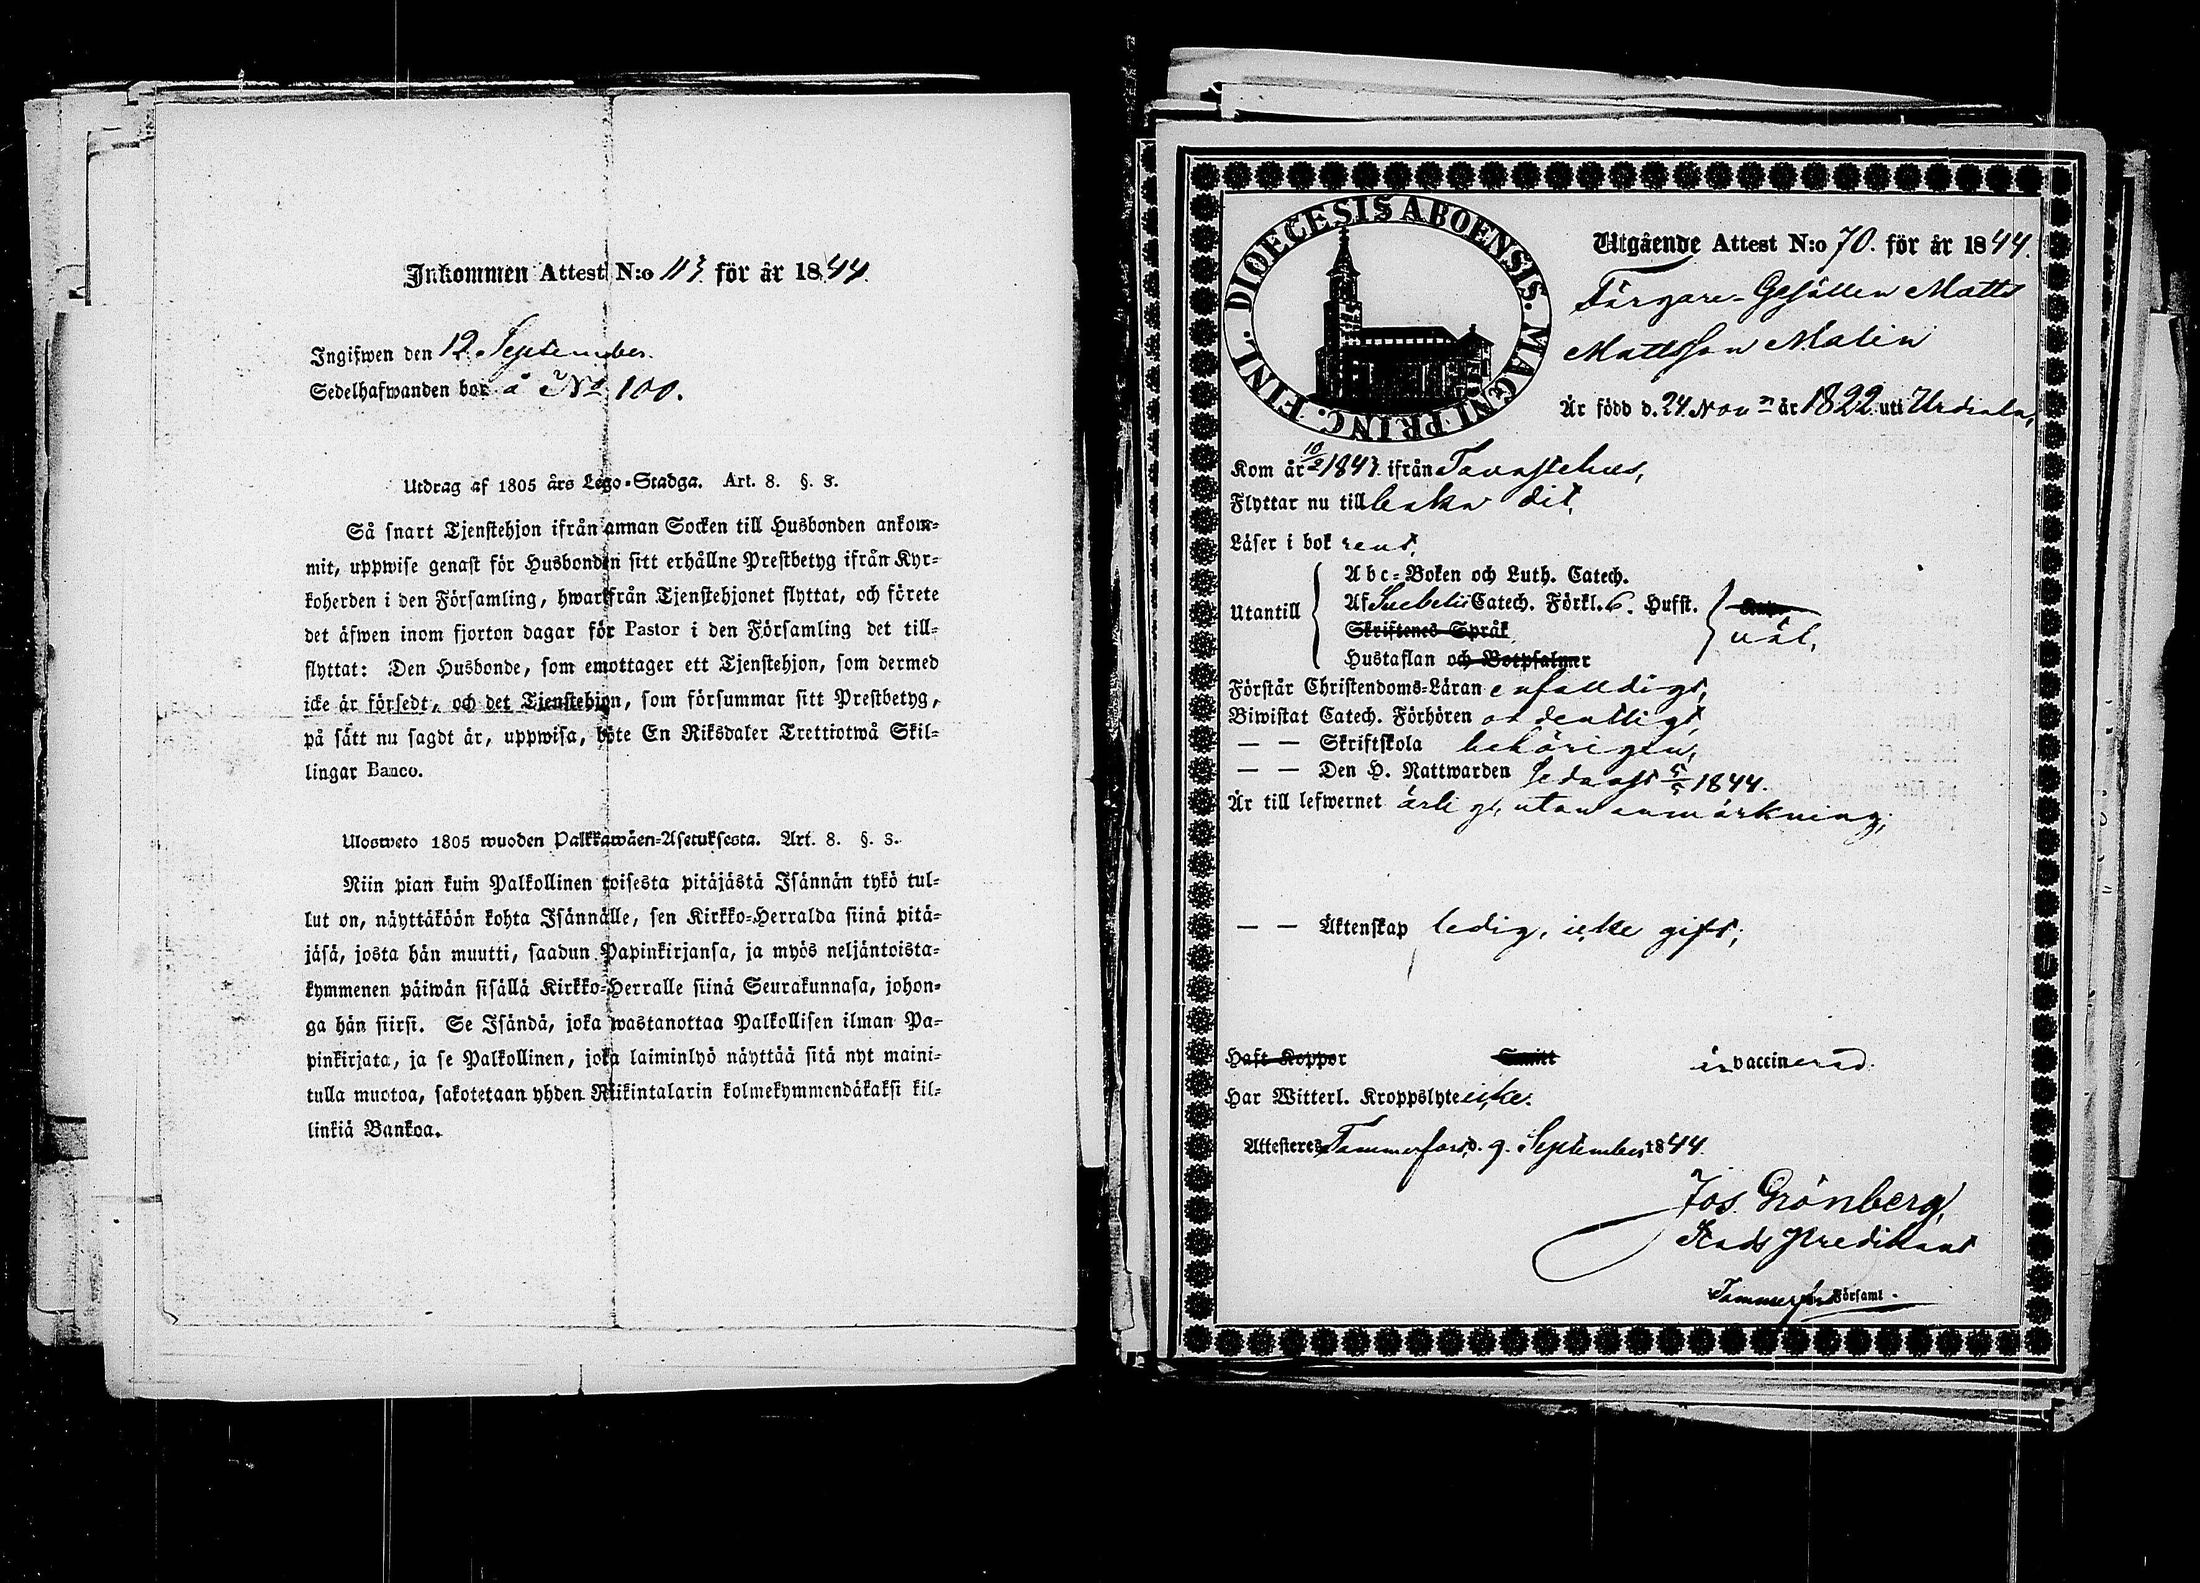 Inkommen Attest N:o 113. för år 1844.
Ingifwen den 12 September.
Sedelhafwanden bor å No 100.
Utdrag af 1805 års Lego-Stadga. Art. 8. §. 3.
Så snart Tjenstehjon ifrån annan Socken till Husbonden ankom-
mit, uppwise genast för Husbonden sitt erhållne Prestbetyg ifrån Kyr-
koherden i den Församling, hwarifrån Tjenstehjonet flyttat, och förete
det äfwen inom fjorton dagar för Pastor i den Församling det till-
flyttat: Den Husbonde, som emottager ett Tjenstehjon, som dermed
icke är försedt, och det Tjenstehjon, som försummar sitt Prestbetyg,
på sätt nu sagdt är, uppwisa, böte En Riksdaler Trettiotwå Skil-
lingar Banco.
Ulosweto 1805 wuoden Palkkawäen-Asetuksesta. Art. 8. §. 3.
Niin pian kuin Palkollinen toisesta pitäjästä Isännän tykö tul-
lut on, näyttäköön kohta Isännälle, sen Kirkko-Herralda siinä pitä-
jäsä, josta hän muutti, saadun Papinkirjansa, ja myös neljäntoista-
kymmenen päiwän sisällä Kirkko-Herralle siinä Seurakunnasa, johon-
ga hän siirsi. Se Isändä, joka wastanottaa Palkollisen ilman Pa-
pinkirjata, ja se Palkollinen, joka laiminlyö näyttää sitä nyt maini-
tulla muotoa, sakotetaan yhden Riikintalarin kolmekymmendäkaksi kil-
linkiä Bankoa.
DIOECESIS ABOENSIS. MAGNI PRINC. FINL.
Utgående Attest N:o 70. för år 1844.
Färgare-Gesällen Matts
Mattsson Malin
Är född d. 24 Nov n år 1822 uti Urdiala,
Kom år 10/2 1843 ifrån Tavastehus,
Flyttar nu till baka dit,
Läser i bok rent,
Abc-Boken och Luth. Catech.
Utantill Af Svebelii Catech. Förkl. 6. Hufst.
Skriftenes Språk väl,
Hustaflan och Botpsalmer
Förstår Christendoms-Läran enfaldigt,
Biwistat Catech. Förhören ordentligt,
— — Skriftskola behörigen,
— — Den H. Nattwarden sednast 5/5 1844.
Är till lefwernet ärligt, utan anmärkning,
— — Äktenskap ledig, icke gift;
Haft Koppor Smitt är vaccinerad.
Har Witterl. Kroppslyte icke.
Attesteres Tammerfors, d. 9. September 1844.
Jos. Grönberg,
Stads Predikant
Tammerfors Församl.